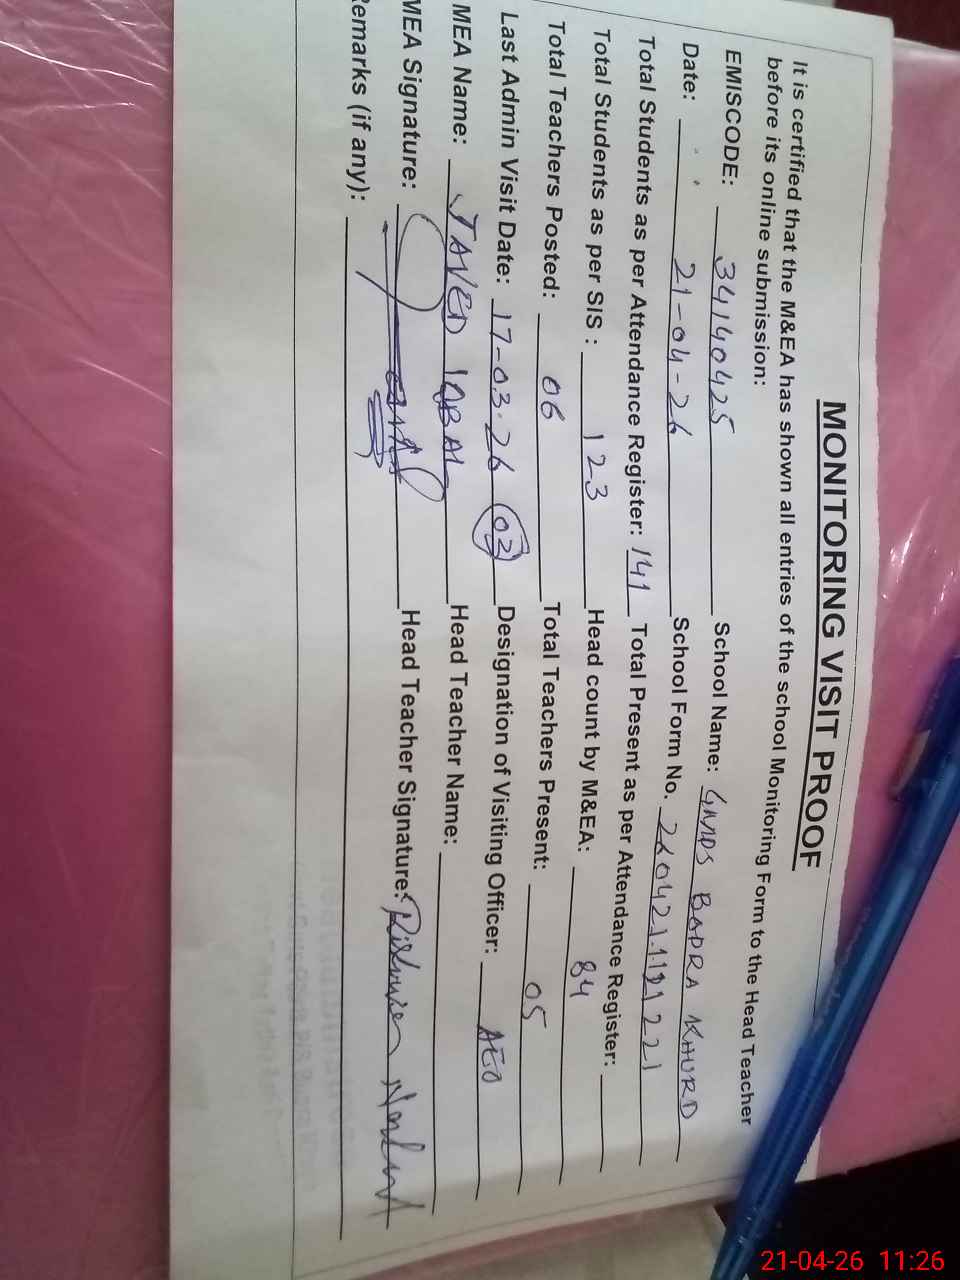 MONITORING VISIT PROOF
It is certified that the M&EA has shown all entries of the school Monitoring Form to the Head Teacher
before its online submission:
EMISCODE: 34140425 School Name: GMPS BADRA KHURD
Date: 21-04-26 School Form No.
Total Students as per Attendance Register: 141 Total Present as per Attendance Register:
Total Students as per SIS : 123 Head count by M&EA: 84
Total Teachers Posted: 06 Total Teachers Present: 05
Last Admin Visit Date: 17-03-26 02 Designation of Visiting Officer: AEO
MEA Name: JAVED IQBAL Head Teacher Name:
MEA Signature: Head Teacher Signature:
emarks (if any):
21-04-26 11:26